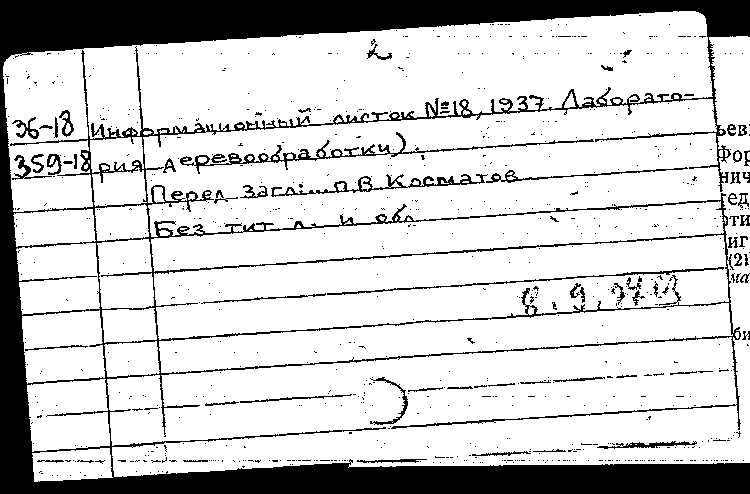 2
36-18 Информационный листок №18, 1937. Лаборато-
359-18 рия деревообработки).
Перед загл: П.В. Косматов
Без тит л. и обл
8.9.
ьев
Фор
нич
ед
оти
иг
(21
ма
би